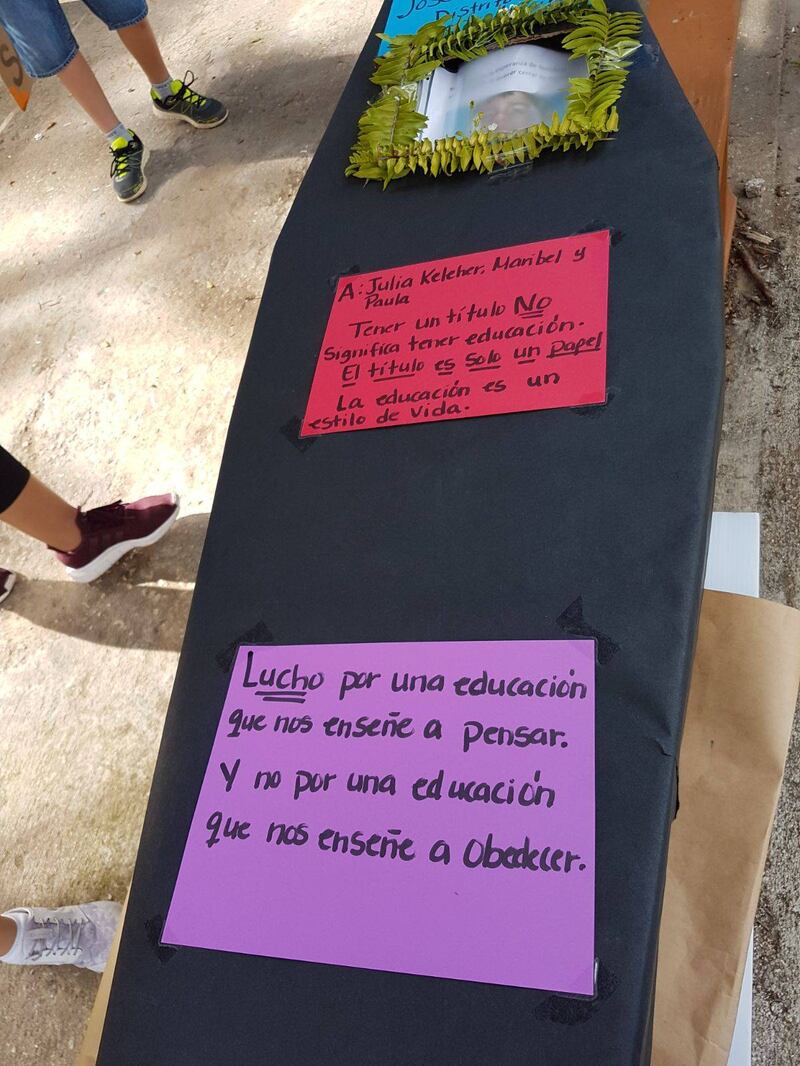 José
Distrito
esperanza de
querer cerrar
A: Julia Keleher, Maribel y
Paula
Tener un título No
Significa tener educación.
El título es solo un papel
La educación es un
estilo de vida.
Lucho por una educación
que nos enseñe a pensar.
Y no por una educación
que nos enseñe a Obedecer.